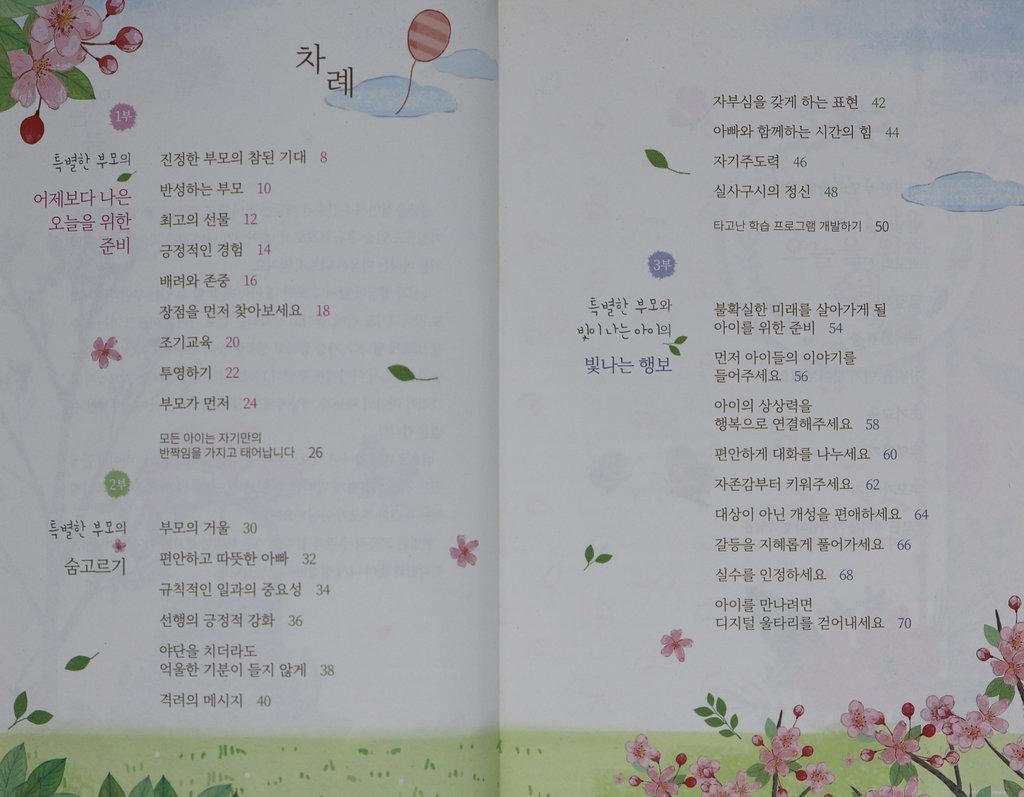 차례
1부
특별한 부모의
어제보다 나은
오늘을 위한
준비
진정한 부모의 참된 기대 8
반성하는 부모 10
최고의 선물 12
긍정적인 경험 14
배려와 존중 16
장점을 먼저 찾아보세요 18
조기교육 20
투영하기 22
부모가 먼저 24
모든 아이는 자기만의
반짝임을 가지고 태어납니다 26
2부
특별한 부모의
숨고르기
부모의 거울 30
편안하고 따뜻한 아빠 32
규칙적인 일과의 중요성 34
선행의 긍정적 강화 36
야단을 치더라도
억울한 기분이 들지 않게 38
격려의 메시지 40
자부심을 갖게 하는 표현 42
아빠와 함께하는 시간의 힘 44
자기주도력 46
실사구시의 정신 48
타고난 학습 프로그램 개발하기 50
3부
특별한 부모와
빛이 나는 아이의
빛나는 행보
불확실한 미래를 살아가게 될
아이를 위한 준비 54
먼저 아이들의 이야기를
들어주세요 56
아이의 상상력을
행복으로 연결해주세요 58
편안하게 대화를 나누세요 60
자존감부터 키워주세요 62
대상이 아닌 개성을 편애하세요 64
갈등을 지혜롭게 풀어가세요 66
실수를 인정하세요 68
아이를 만나려면
디지털 울타리를 걷어내세요 70